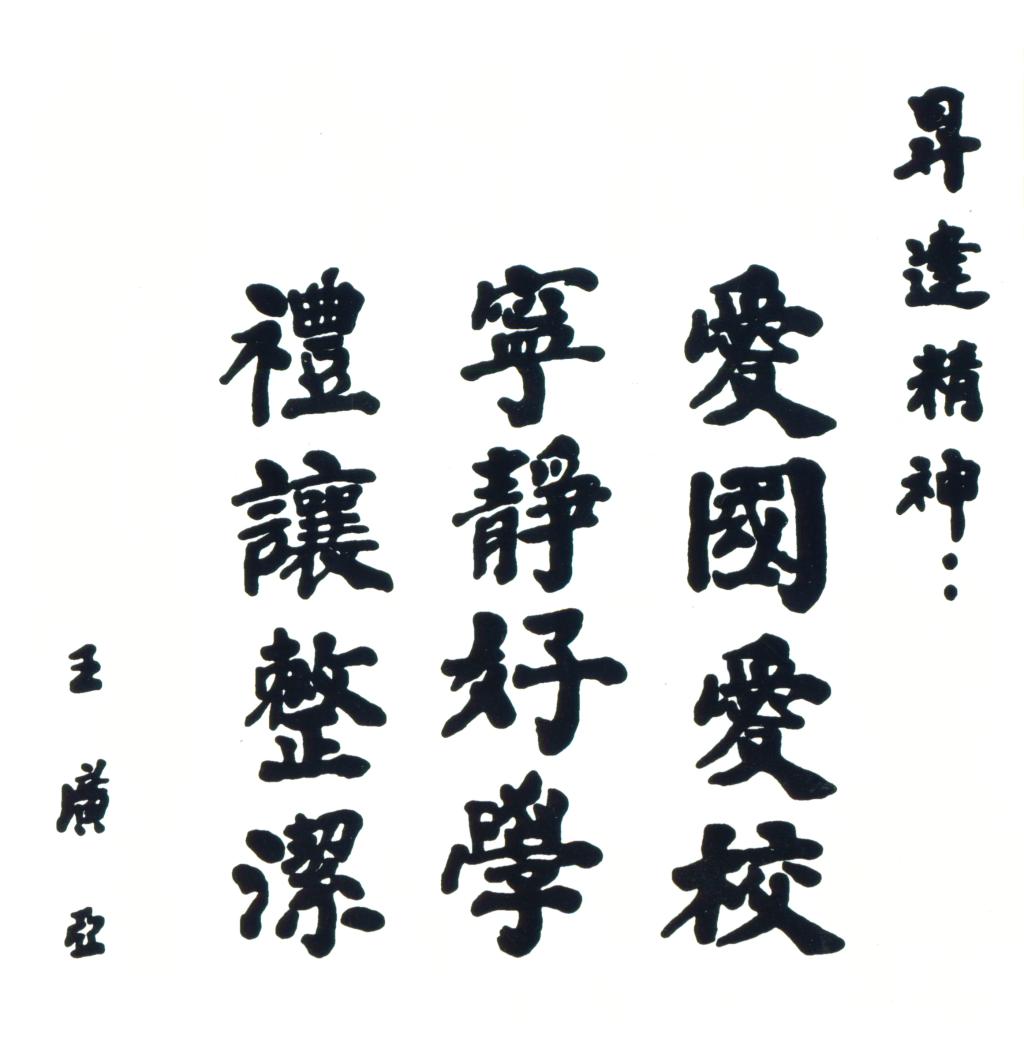 昇達精神：
愛國愛校
寧靜好學
禮讓整潔
王廣亞